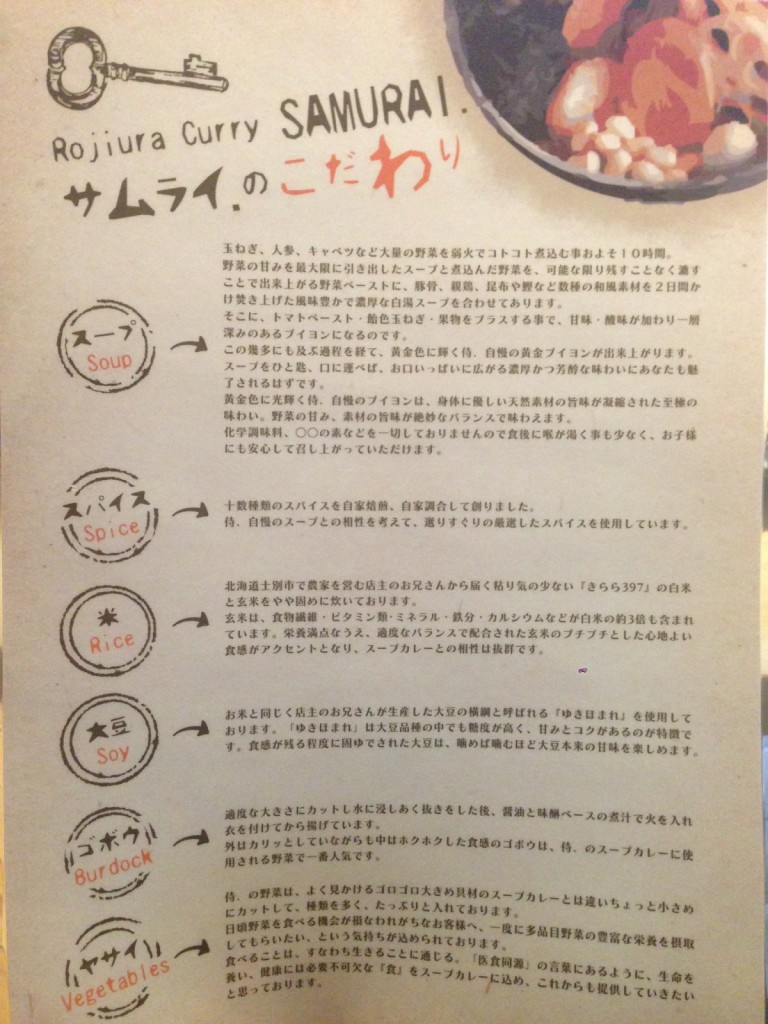 Rojiura Curry SAMURAI.
サムライ.のこだわり
スープ
Soup
玉ねぎ、人参、キャベツなど大量の野菜を弱火でコトコト煮込む事およそ10時間。
野菜の甘みを最大限に引き出したスープと煮込んだ野菜を、可能な限り残すことなく濾す
ことで出来上がる野菜ペーストに、豚骨、親鶏、昆布や鰹など数種の和風素材を2日間か
け焚き上げた風味豊かで濃厚な白湯スープを合わせてあります。
そこに、トマトペースト・飴色玉ねぎ・果物をプラスする事で、甘味・酸味が加わり一層
深みのあるブイヨンになるのです。
この幾多にも及ぶ過程を経て、黄金色に輝く侍.自慢の黄金ブイヨンが出来上がります。
スープをひと匙、口に運べば、お口いっぱいに広がる濃厚かつ芳醇な味わいにあなたも魅
了されるはずです。
黄金色に光輝く侍.自慢のブイヨンは、身体に優しい天然素材の旨味が凝縮された至極の
味わい。野菜の甘み、素材の旨味が絶妙なバランスで味わえます。
化学調味料、〇〇の素などを一切しておりませんので食後に喉が渇く事も少なく、お子様
にも安心して召し上がっていただけます。
スパイス
Spice
十数種類のスパイスを自家焙煎、自家調合して創りました。
侍.自慢のスープとの相性を考えて、選りすぐりの厳選したスパイスを使用しています。
米
Rice
北海道士別市で農家を営む店主のお兄さんから届く粘り気の少ない『きらら397』の白米
と玄米をやや固めに炊いております。
玄米は、食物繊維・ビタミン類・ミネラル・鉄分・カルシウムなどが白米の約3倍も含まれ
ています。栄養満点なうえ、適度なバランスで配合された玄米のプチプチとした心地よい
食感がアクセントとなり、スープカレーとの相性は抜群です。
大豆
Soy
お米と同じく店主のお兄さんが生産した大豆の横綱と呼ばれる『ゆきほまれ』を使用して
おります。「ゆきほまれ」は大豆品種の中でも糖度が高く、甘みとコクがあるのが特徴で
す。食感が残る程度に固ゆでされた大豆は、噛めば噛むほど大豆本来の甘味を楽しめます。
ゴボウ
Burdock
適度な大きさにカットし水に浸しあく抜きをした後、醤油と味醂ベースの煮汁で火を入れ
衣を付けてから揚げています。
外はカリッとしていながらも中はホクホクした食感のゴボウは、侍.のスープカレーに使
用される野菜で一番人気です。
ヤサイ
Vegetables
侍.の野菜は、よく見かけるゴロゴロ大きめ具材のスープカレーとは違いちょっと小さめ
にカットして、種類を多く、たっぷりと入れております。
日頃野菜を食べる機会が損なわれがちなお客様へ、一度に多品目野菜の豊富な栄養を摂取
してもらいたい、という気持ちが込められております。
食べることは、すなわち生きることに通じる。「医食同源」の言葉にあるように、生命を
養い、健康には必要不可欠な『食』をスープカレーに込め、これからも提供していきたい
と思っております。